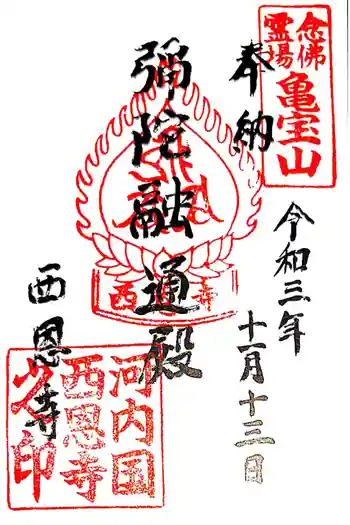 念佛
霊場
亀宝山
奉納
令和三年
十一月十三日
彌陀融通殿
西恩寺
西恩寺
河内国
西恩寺
之印